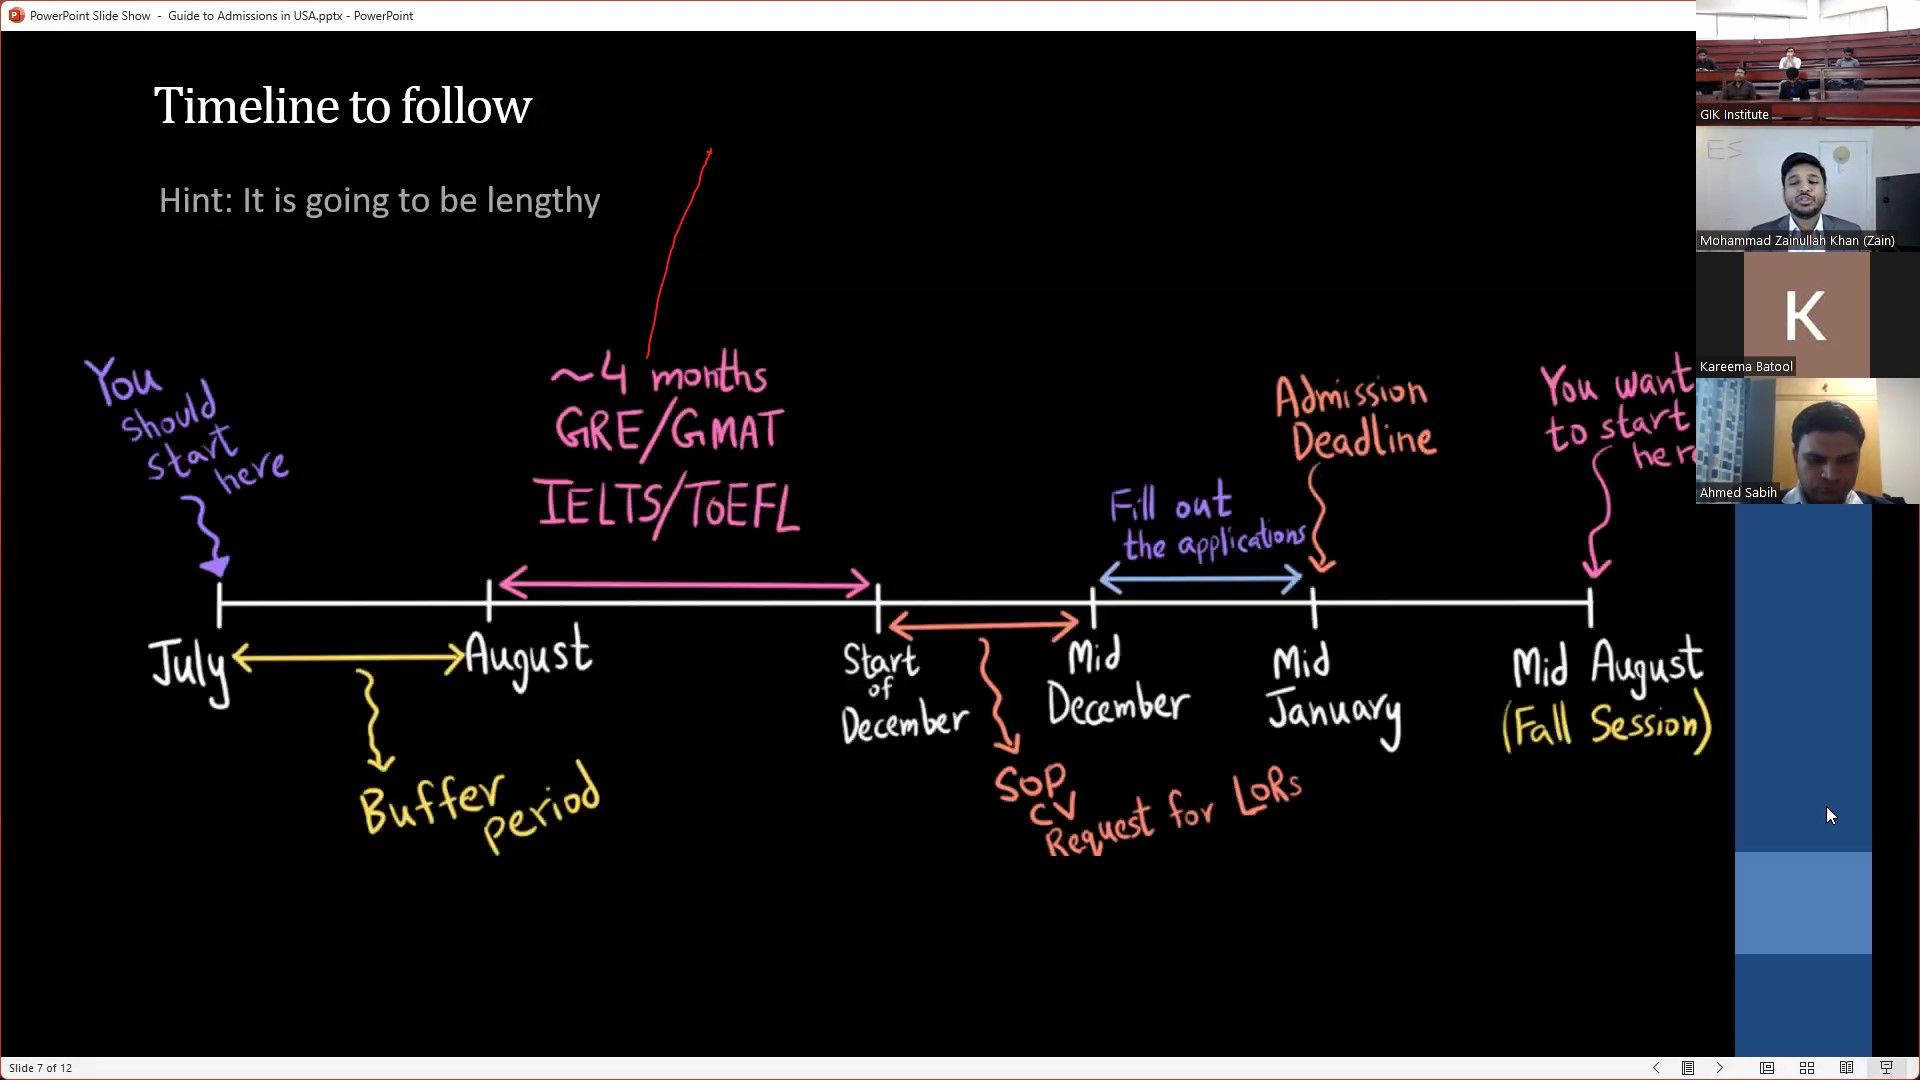 PowerPoint Slide Show - Guide to Admissions in USA.pptx - PowerPoint
Timeline to follow
Hint: It is going to be lengthy
You
should
start
here
~4 months
GRE/GMAT
IELTS/TOEFL
Fill out
the applications
Admission
Deadline
You want
to start
here
July
August
Start
of
December
Mid
December
Mid
January
Mid August
(Fall Session)
Buffer
period
SOP
CV
Request for LORs
GIK Institute
ES
Mohammad Zainullah Khan (Zain)
K
Kareema Batool
Ahmed Sabih
Slide 7 of 12